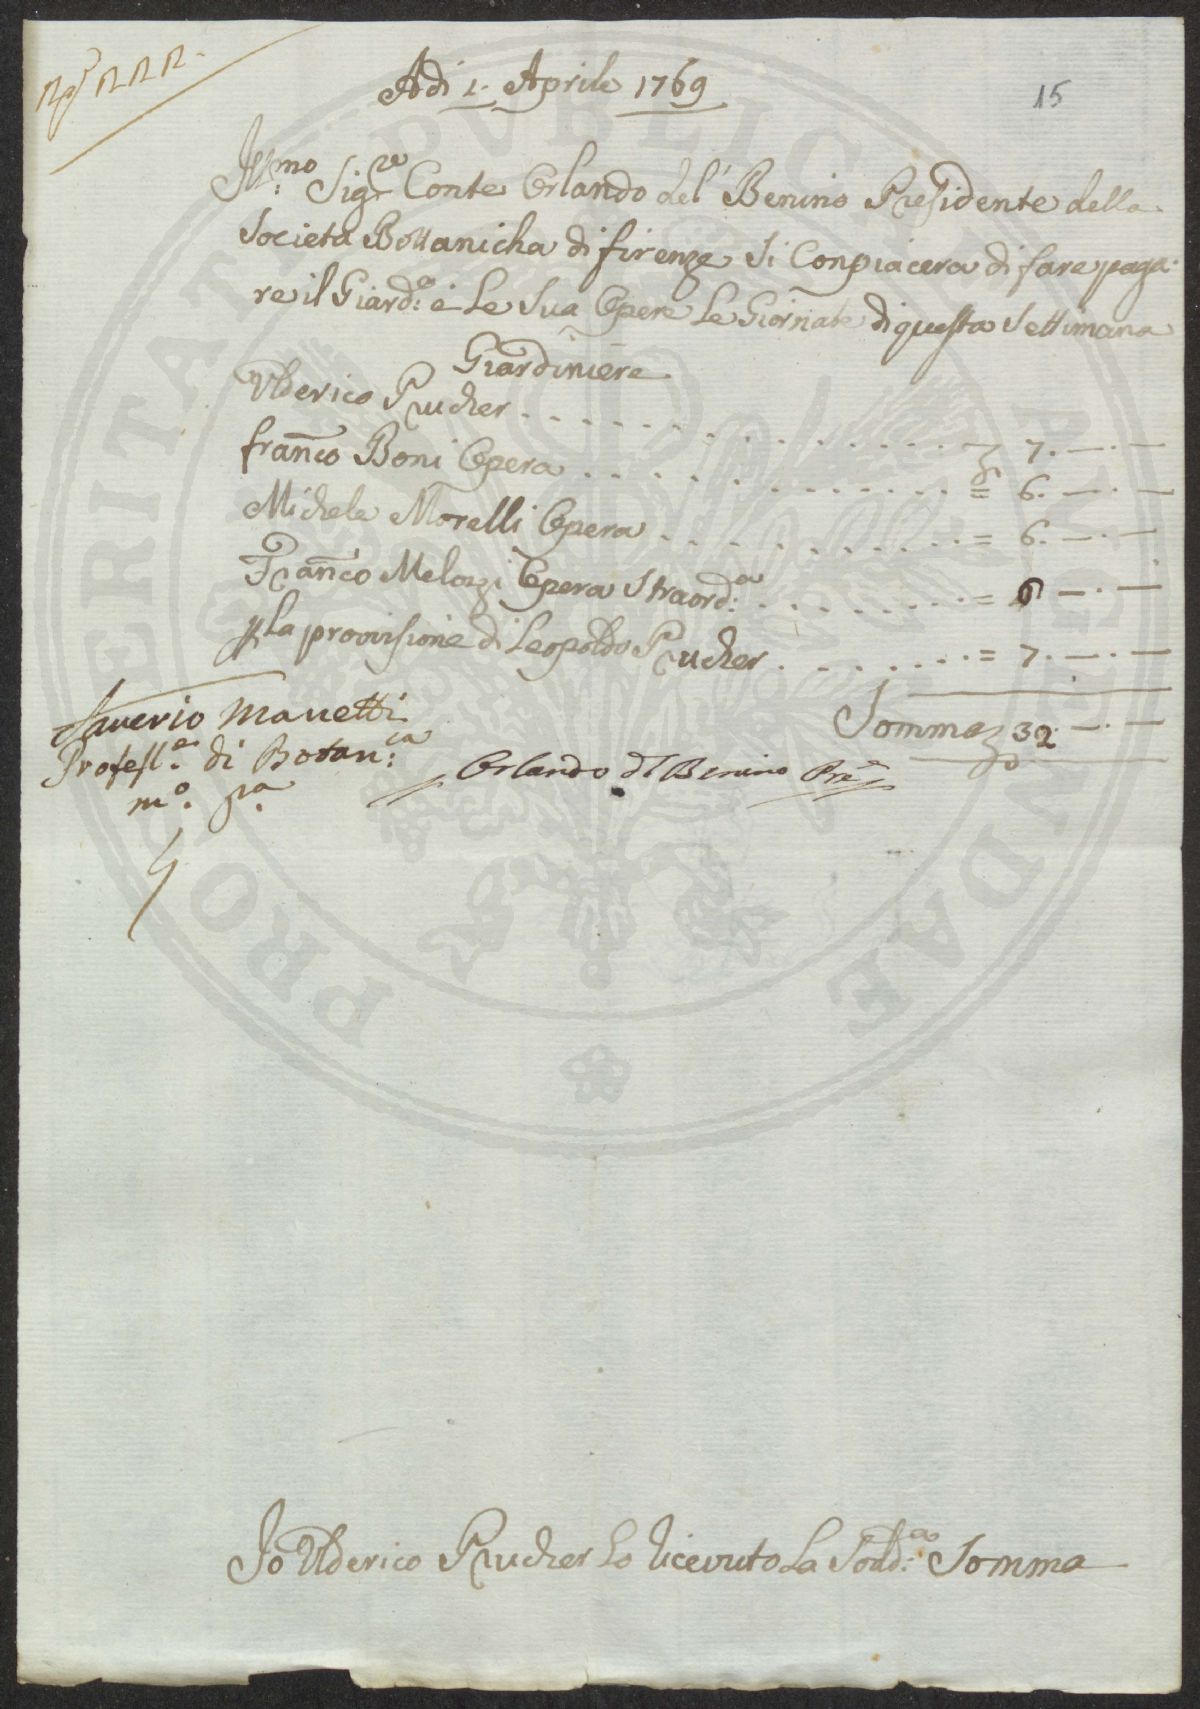 Adi 1. Aprile 1769
15
Ill:mo Sig:re Conte Orlando del' Benino Presidente della
Societa Bottanicha di firenze si Conpiacera di fare paga:
re il Giard:e é Le Sua Opere Le Giornate di questa Settimana
Giardiniere
Ulderico Prucher . . . . . . . . . . . . . . . 7. — . —
franco Boni Opera . . . . . . . . . . . . . = 6. — . —
Michele Morelli Opera . . . . . . . . . . = 6. — . —
Franco Melozzi Opera straord:a . . . . . . . = 6 — . —
La provvisione di Leopoldo Prucher . . . . . . . = 7. — . —
Somma 32. — . —
Saverio Manetti
Profess:e di Botan:ca
m:o p:a
Orlando del Benino Pre
Io Ulderico Prucher ho ricevuto La Sodd:a Somma
PRO VERITATE PUBLICA